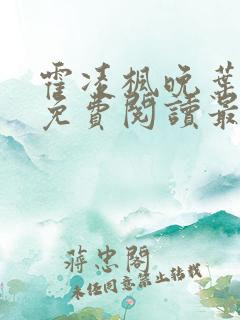 霍凌楓晚葉
免費閱讀最
蔣忠閣
未经同意禁止转载